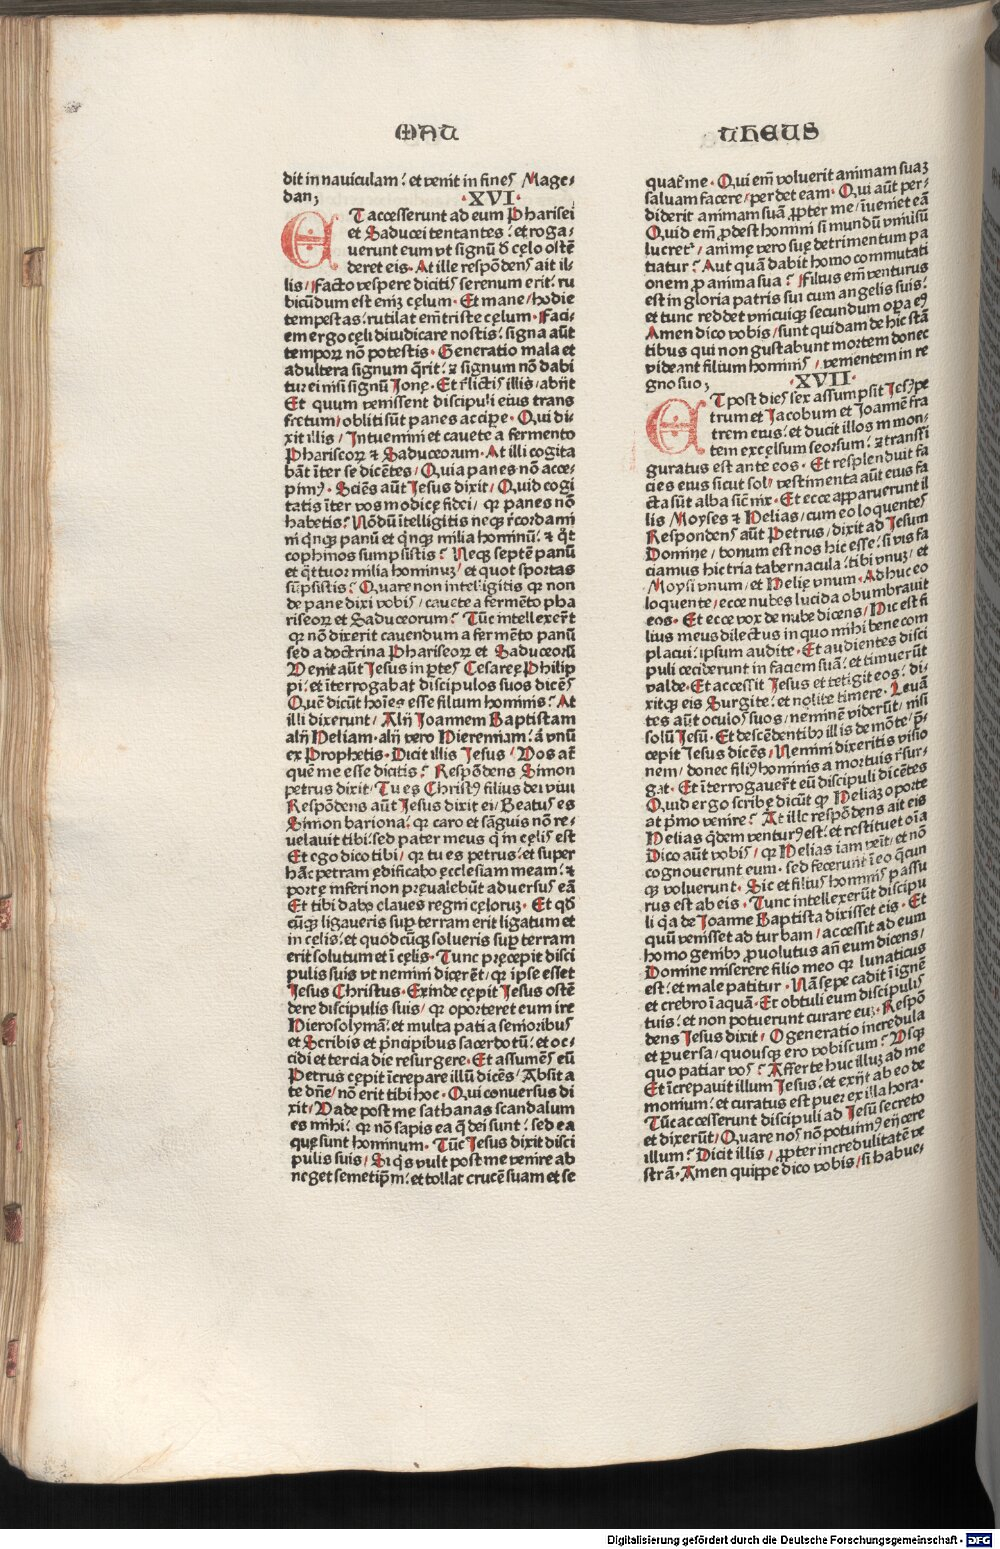 MAT
THEUS
dit in nauiculam: et venit in fines Mage-
dan;
XVI.
ET accesserunt ad eum Pharisei
et Saducei tentantes: et roga-
uerunt eum vt signū d̄ cęlo ostē
deret eis. At ille respōdens ait il-
lis/ Facto vespere dicitis serenum erit: ru
bicūdum est eniȝ cęlum. Et mane/ hodie
tempestas: rutilat em̄ triste cęlum. Faci-
em ergo cęli diiudicare nostis: signa aūt
temporꝝ nō potestis. Generatio mala et
adultera signum q̄rit: ⁊ signum nō dabi
tur ei nisi signū Jonę. Et r̄lictis illis/ abijt
Et quum venissent discipuli eius trans
fretum/ obliti sūt panes acciꝑe. Qui di-
xit illis/ Intuemini et cauete a fermento
Phariseorꝝ ⁊ Saduceorum. At illi cogita
bāt īter se dicētes/ Quia panes nō acce-
pimꝰ. Sciēs aūt Jesus dixit/ Quid cogi
tatis īter vos modicę fidei/ qꝛ panes nō
habetis: Nōdū ītelligitis neqꝫ r̄cordami
ni q̄nqꝫ panū et q̄nqꝫ milia hominū: ⁊ q̄t
cophinos sumpsistis? Neqꝫ septē panū
et q̄ttuor milia hominuȝ/ et quot sportas
sūpsistis? Quare non intelligitis qꝛ non
de pane dixi vobis/ cauete a fermēto pha
riseorꝝ et Saduceorum? Tūc intellexer̄t
qꝛ nō dixerit cauendum a fermēto panū
sed a doctrina Phariseorꝝ et Saduceorū
Venit aūt Jesus in ꝑtes Cesaręę Philip
pi: et īterrogabat discipulos suos dicēs
Quē dicūt hoīes esse filium hominis? At
illi dixerunt/ Alij Joannem Baptistam
alij Heliam. alij vero Hieremiam: aūt vnū
ex Prophetis. Dicit illis Jesus/ Vos aūt
quē me esse dicitis? Respōdens Simon
petrus dixit/ Tu es Christꝰ filius dei viui
Respōdens aūt Jesus dixit ei/ Beatus es
Simon bariona: qꝛ caro et sāguis nō re-
uelauit tibi: sed pater meus q̄ in cęlis est
Et ego dico tibi/ qꝛ tu es petrus: et super
hāc petram ędificabo ęcclesiam meam: ⁊
portę inferi non pręualebūt aduersus eā
Et tibi dabo claues regni cęloruȝ. Et qd̄
cūqꝫ ligaueris suꝑ terram erit ligatum et
in cęlis: et quodcūqꝫ solueris suꝑ terram
erit solutum et ī cęlis. Tunc pręcepit disci
pulis suis vt nemini diceret/ qꝛ ipse esset
Jesus Christus. Exinde cępit Jesus ostē
dere discipulis suis/ qꝛ oporteret eum ire
Hierosolymā: et multa pati a senioribus
et Scribis et p̄ncipibus sacerdotū: et oc-
cidi et tercia die resurgere. Et assumēs eū
Petrus cępit īcrepare illū dicēs/ Absit a
te dn̄e/ nō erit tibi hoc. Qui conuersus di
xit/ Vade post me sathanas scandalum
es mihi: qꝛ nō sapis ea q̄ dei sunt: sed ea
quę sunt hominum. Tūc Jesus dixit disci
pulis suis/ Si q̄s vult post me venire ab
neget semetip̄m: et tollat crucē suam et se
quat̄ me. Qui em̄ voluerit animam suaȝ
saluam facere/ perdet eam. Qui aūt per-
diderit animam suā ꝓpter me/ īueniet eā
Quid em̄ ꝓdest homini si mundū vniūsū
lucret̄/ animę vero suę detrimentum pa
tiatur? Aut quā dabit homo commutati
onem ꝓ anima sua? Filius em̄ venturus
est in gloria patris sui cum angelis suis:
et tunc reddet vnicuiqꝫ secundum oꝑa eiꝰ
Amen dico vobis/ sunt quidam de hic stā
tibus qui non gustabunt mortem donec
videant filium hominis/ venientem in re
gno suo;
XVII.
ET post dies sex assumpsit Jesꝰ pe
trum et Jacobum et Joannē fra
trem eius: et ducit illos in mon-
tem excęlsum seorsum: ⁊ transfi
guratus est ante eos. Et resplenduit fa
cies eius sicut sol/ vestimenta aūt eius fa
cta sūt alba sic̄ nix. Et ecce apparuerunt il
lis Moyses ⁊ Helias/ cum eo loquentes
Respondens aūt Petrus/ dixit ad Jesum
Domine/ bonum est nos hic esse: si vis fa
ciamus hic tria tabernacula: tibi vnuȝ/ et
Moysi vnum/ et Helię vnum. Adhuc eo
loquente/ ecce nubes lucida obumbrauit
eos. Et ecce vox de nube dicens/ Hic est fi
lius meus dilectus in quo mihi bene com
placui: ipsum audite. Et audientes disci
puli ceciderunt in faciem suā: et timuerūt
valde. Et accessit Jesus et tetigit eos: di-
xitqꝫ eis Surgite: et nolite timere. Leuā
tes aūt oculos suos/ neminē viderūt/ nisi
solū Jesū. Et descēdentibꝰ illis de mōte/ p̄-
cepit Jesus dicēs/ Nemini dixeritis visio
nem/ donec filiꝰ hominis a mortuis r̄sur-
gat. Et īterrogauer̄t eū discipuli dicētes
Quid ergo scribę dicūt qꝙ Heliaȝ oporte
at p̄mo venire? At ille respōdens ait eis
Helias q̄dem venturꝰ est: et restituet oīa
Dico aūt vobis/ qꝛ Helias iam venit/ et nō
cognouerunt eum. sed fecerunt ī eo q̄cun
qꝫ voluerunt. Sic et filius hominis passu
rus est ab eis. Tunc intellexerūt discipu
li q̄a de Joanne Baptista dixisset eis. Et
quū venisset ad turbam/ accessit ad eum
homo genibꝰ ꝓuolutus an̄ eum dicens/
Domine miserere filio meo qꝛ lunaticus
est: et male patitur. Nā sępe cadit ī ignē
et crebro ī aquā. Et obtuli eum discipulis
tuis: et non potuerunt curare euȝ. Respō
dens Jesus dixit/ O generatio incredula
et ꝑuersa/ quousqꝫ ero vobiscum? Vsqꝫ
quo patiar vos? Afferte huc illuȝ ad me
Et īcrepauit illum Jesus: et exijt ab eo de
monium: et curatus est puer ex illa hora.
Tūc accesserunt discipuli ad Jesū secreto
et dixerūt/ Quare nos nō potuimꝰ eijcere
illum? Dicit illis/ ꝓpter incredulitatē ve
strā. Amen quippe dico vobis/ si habue-
Digitalisierung gefördert durch die Deutsche Forschungsgemeinschaft - DFG